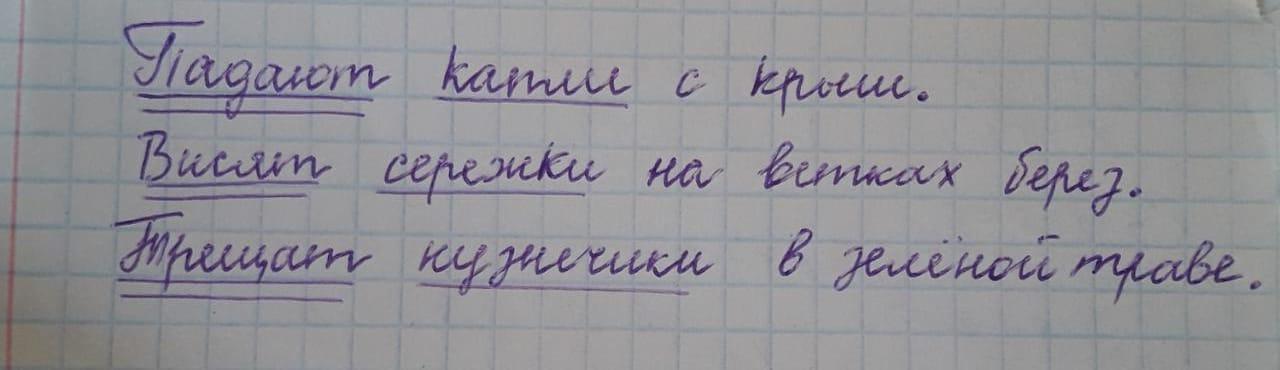 Падают капли с крыш.
Висят сережки на ветках берез.
Трещат кузнечики в зелёной траве.